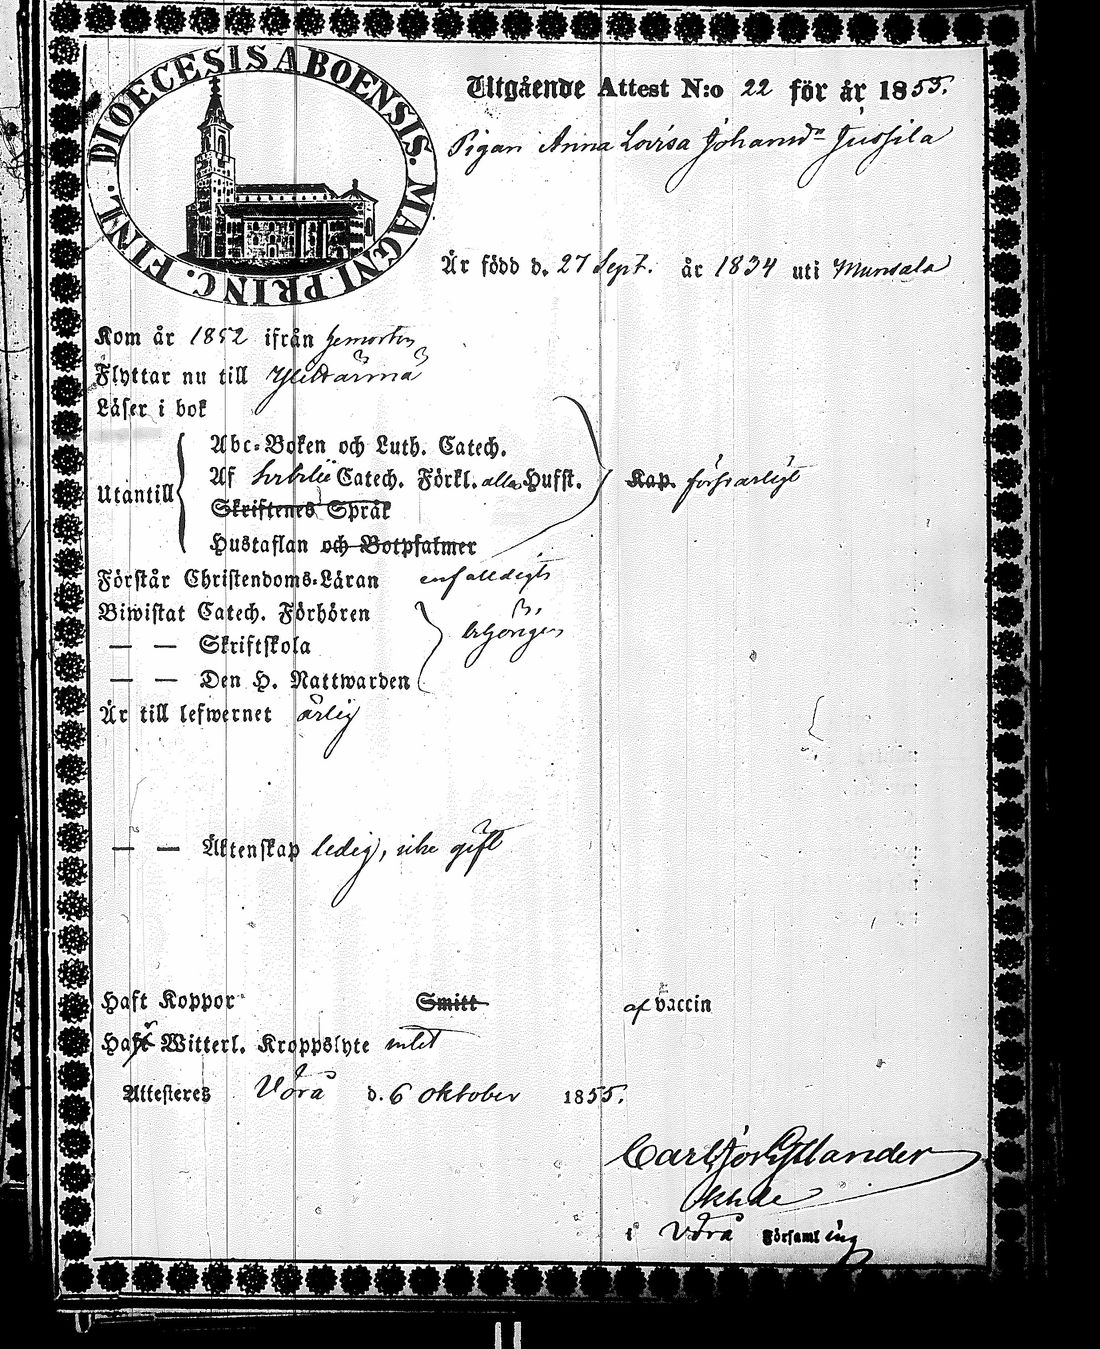 DIOECESIS ABOENSIS. MAGNI PRINC. FINL.
Utgående Attest N:o 22 för år 1855.
Pigan Anna Lovisa Johansdr Jussila
Är född d. 27 Sept. år 1834 uti Munsala
Kom år 1852 ifrån hemorten
Flyttar nu till Ylihärmä
Läser i bok
Utantill
Abc-Boken och Luth. Catech.
Af Svebilii Catech. Förkl. alla Husst. Kap. försvarligt
Skriftenes Språk
Hustaflan och Botpsalmer
Förstår Christendoms-Läran enfaldigt
Biwistat Catech. Förhören
— — Skriftskola
— — Den H. Nattwarden
Är till lefwernet ärlig
— — Äktenskap ledig, icke gift
Haft Koppor Smitt af vaccin
Witterl. Kroppslyte intet
Attesteres Vörå d. 6 oktober 1855.
i Vörå Församling